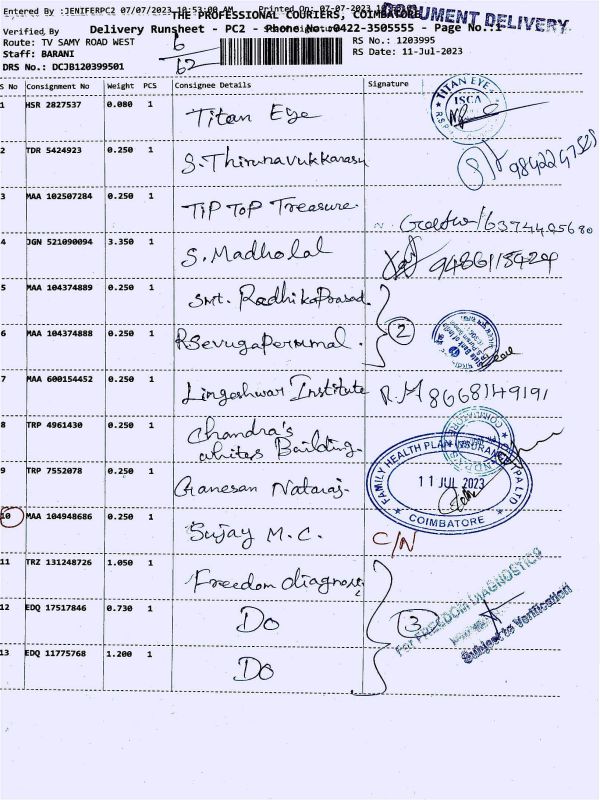 Entered By :JENIFERPC2 07/07/2023 10:53:00 AM Printed On: 07-07-2023
THE PROFESSIONAL COURIERS, COIMBATORE
DOCUMENT DELIVERY
Verified, By Delivery Runsheet - PC2 - Phone No.:0422-3505555 - Page No.:1
Route: TV SAMY ROAD WEST 6 RS No.: 1203995
Staff: BARANI 62 RS Date: 11-Jul-2023
DRS No.: DCJB120399501
S No Consignment No Weight PCS Consignee Details Signature
1 HSR 2827537 0.080 1 Titan Eye
TITAN EYE
ISCA
2 TDR 5424923 0.250 1 S.Thirunavukkarasu
3 MAA 102507284 0.250 1 Tip Top Treasure
4 JGN 521090094 3.350 1 S.Madholal 9486118424
5 MAA 104374889 0.250 1 Smt. RadhikaPrasad
6 MAA 104374888 0.250 1 RSevugaPerumal. 2
7 MAA 600154452 0.250 1 Lingeshwar Institute R.M 8668149191
8 TRP 4961430 0.250 1 Chandra's
Building.
9 TRP 7552078 0.250 1 Ganesan Nataraj.
FAMILY HEALTH PLAN INSURANCE TPA LTD
11 JUL 2023
COIMBATORE
10 MAA 104948686 0.250 1 Sujay M.C. C/N
11 TRZ 131248726 1.050 1 Freedom diagnosis
12 EDQ 17517846 0.730 1 Do 3
For FREEDOM DIAGNOSTICS
Subject to Verification
13 EDQ 11775768 1.200 1 Do